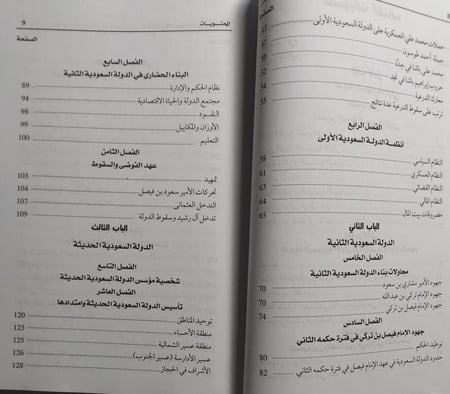 حملات محمد علي العسكرية على الدولة السعودية الأولى 47
حملة أحمد طوسون
محمد علي باشا في جدَّة
حروب إبراهيم باشا في نجد
معارك الدرعية
ترتب على سقوط الدرعية عدة نتائج 55
الفصل الرابع
أنظمة الدولة السعودية الأولى
النظام السياسي 58
النظام العسكري 61
النظام القضائي
النظام المالي 64
مصروفات بيت المال 65
الباب الثاني
الدولة السعودية الثانية
الفصل الخامس
محاولات بناء الدولة السعودية الثانية
جهود الأمير مشاري بن سعود 70
جهود الإمام تركي بن عبد الله 70
جهود الإمام فيصل بن تركي 74
الفصل السادس
جهود الإمام فيصل بن تركي في فترة حكمه الثاني
توطيد الحكم 80
حدود الدولة السعودية في عهد الإمام فيصل في فترة حكمه الثاني 82
المحتويات 9
الصفحة
الفصل السابع
البناء الحضاري في الدولة السعودية الثانية
نظام الحكم والإدارة 89
مجتمع الدولة والحياة الاقتصادية 94
النقــود 98
الأوزان والمكاييل 99
التعليم 100
الفصل الثامن
عهد الفوضى والسقوط
تمهيد 103
تحركات الأمير سعود بن فيصل 104
التدخل العثماني 107
تدخل آل رشيد وسقوط الدولة 109
الباب الثالث
الدولة السعودية الحديثة
الفصل التاسع
شخصية مؤسس الدولة السعودية الحديثة
الفصل العاشر
تأسيس الدولة السعودية الحديثة وامتدادها
توحيد المناطق 120
منطقة الأحساء 123
منطقة عسير الشمالية 125
عسير الأدارسة (عسير الجنوب) 126
الأشراف في الحجاز 128